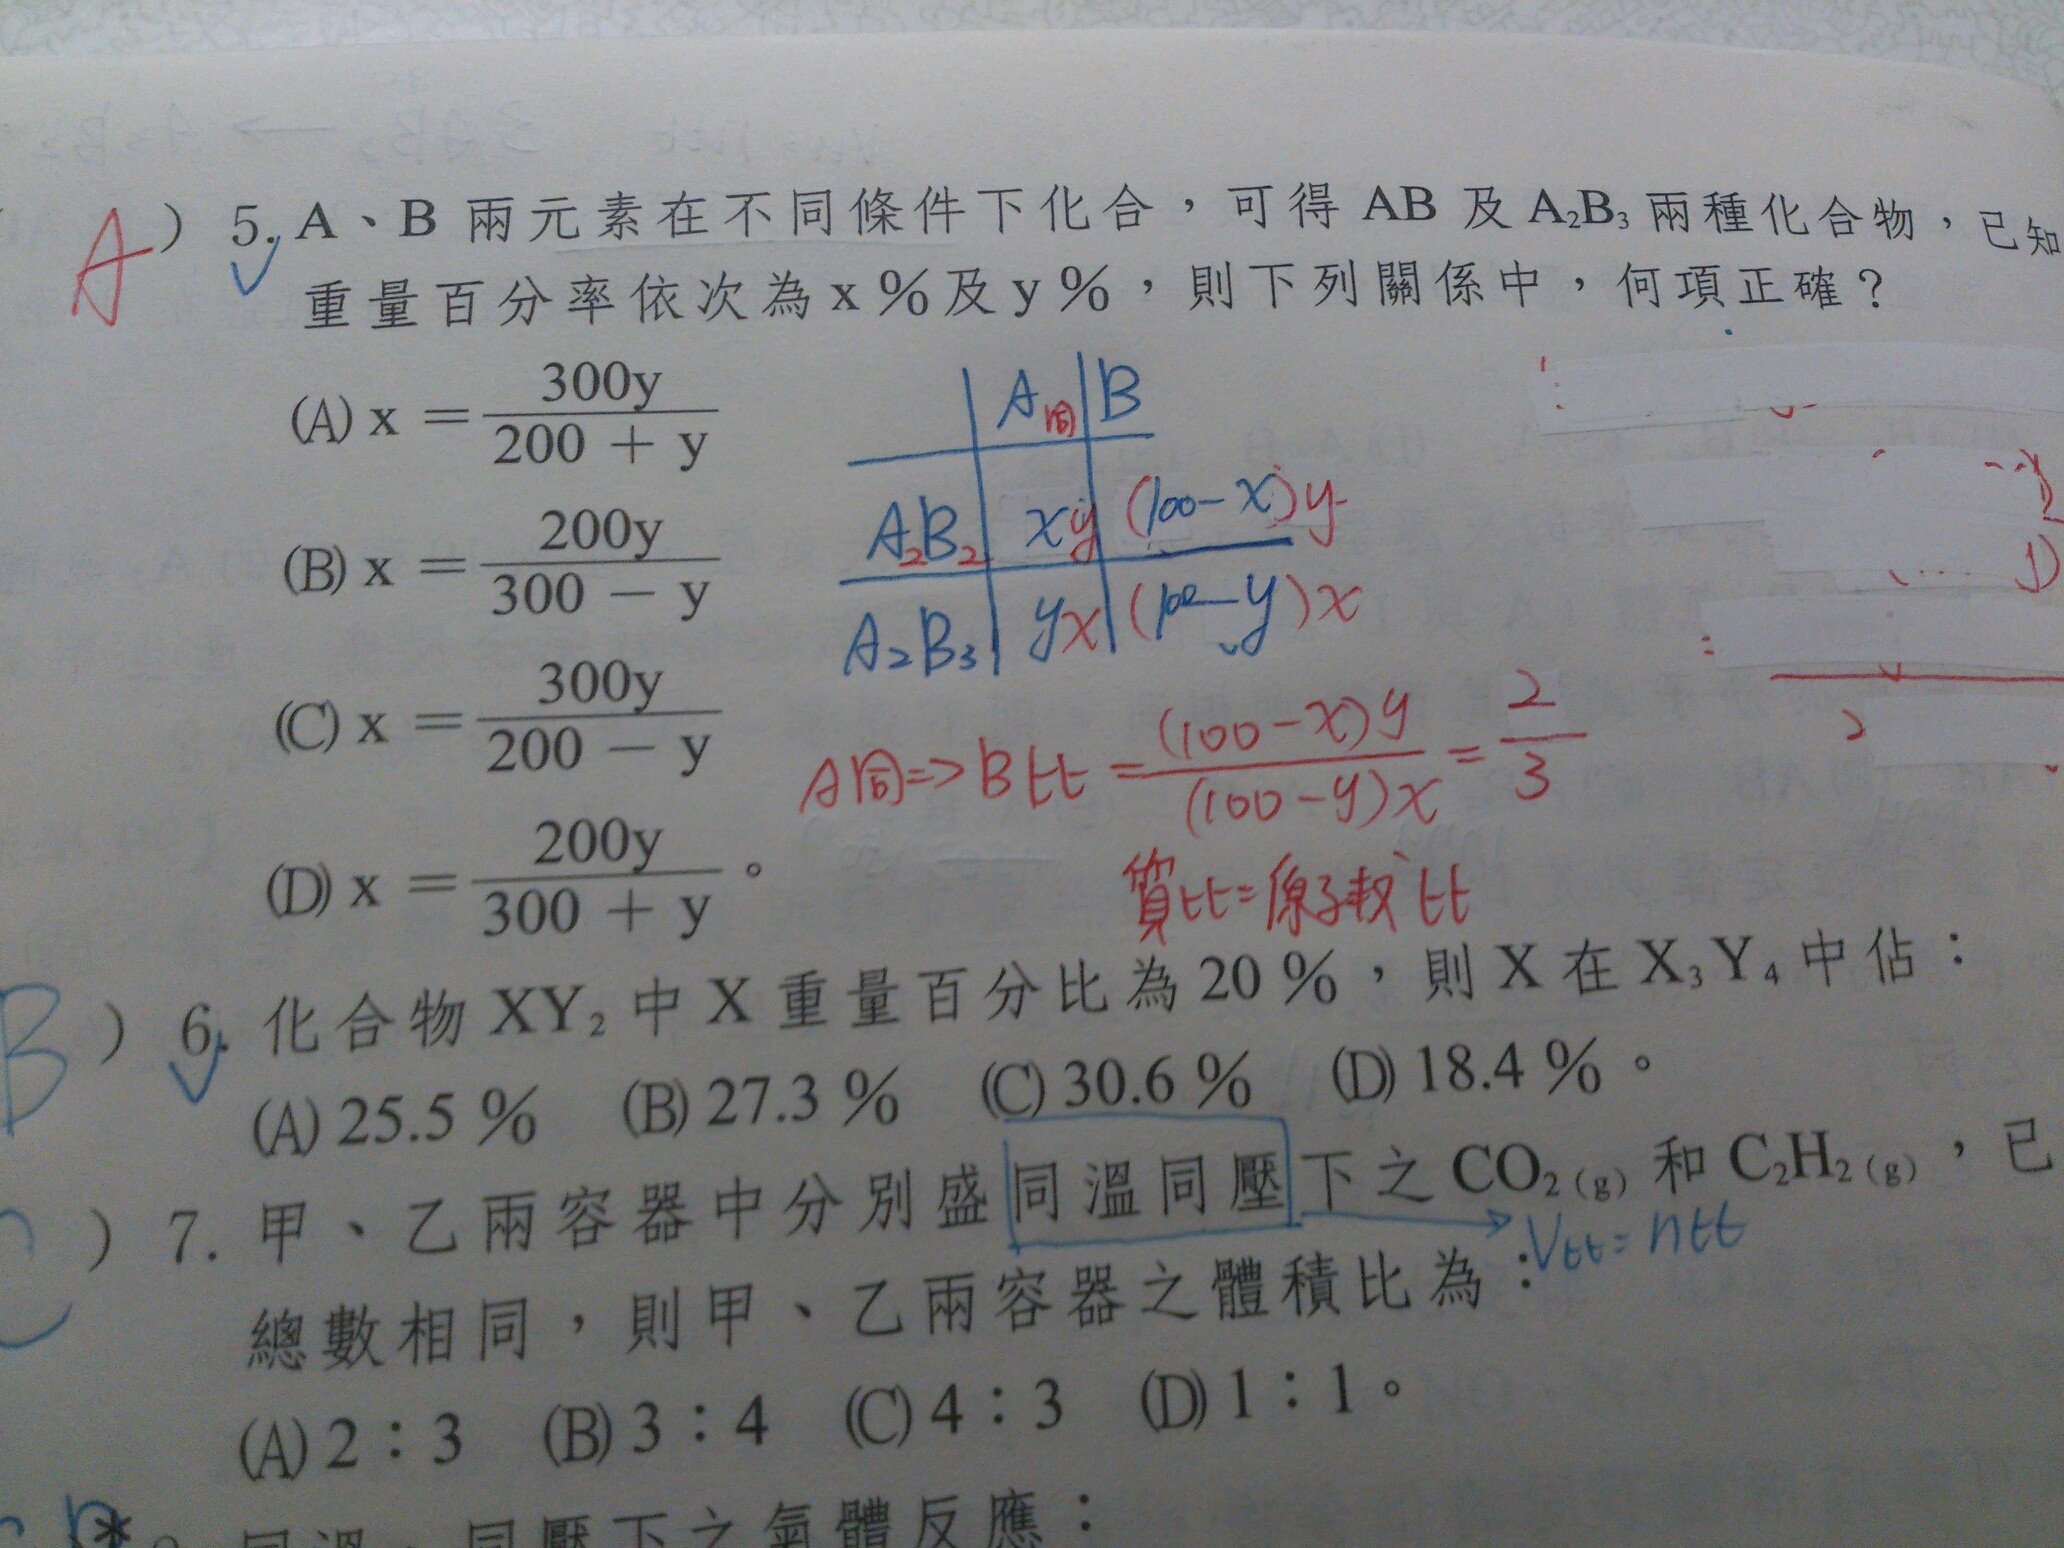 A ) 5. A、B 兩元素在不同條件下化合，可得 AB 及 A₂B₃ 兩種化合物，已知
重量百分率依次為 x % 及 y %，則下列關係中，何項正確？
(A) x = 300y / 200 + y
(B) x = 200y / 300 − y
(C) x = 300y / 200 − y
(D) x = 200y / 300 + y 。
A同 B
A₂B₂ xy (100-x)y
A₂B₃ yx (100-y)x
A同=>B比 = (100-x)y / (100-y)x = 2 / 3
質比=原子數比
B ) 6. 化合物 XY₂ 中 X 重量百分比為 20 %，則 X 在 X₃Y₄ 中佔：
(A) 25.5 % (B) 27.3 % (C) 30.6 % (D) 18.4 %。
) 7. 甲、乙兩容器中分別盛同溫同壓下之 CO₂(g) 和 C₂H₂(g)，已
V比=n比
總數相同，則甲、乙兩容器之體積比為：
(A) 2：3 (B) 3：4 (C) 4：3 (D) 1：1。
同溫、同壓下之氣體反應：